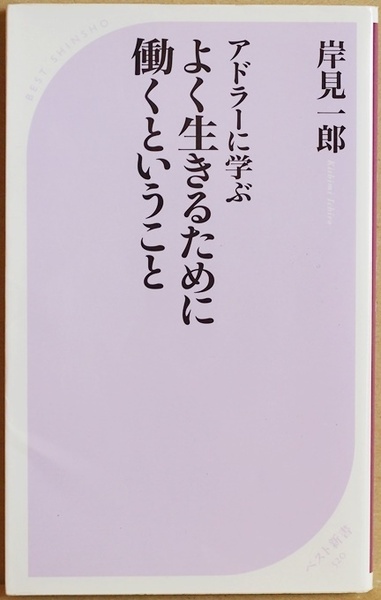 岸見一郎
Kishimi Ichiro
アドラーに学ぶ
よく生きるために
働くということ
BEST SHINSHO
ベスト新書